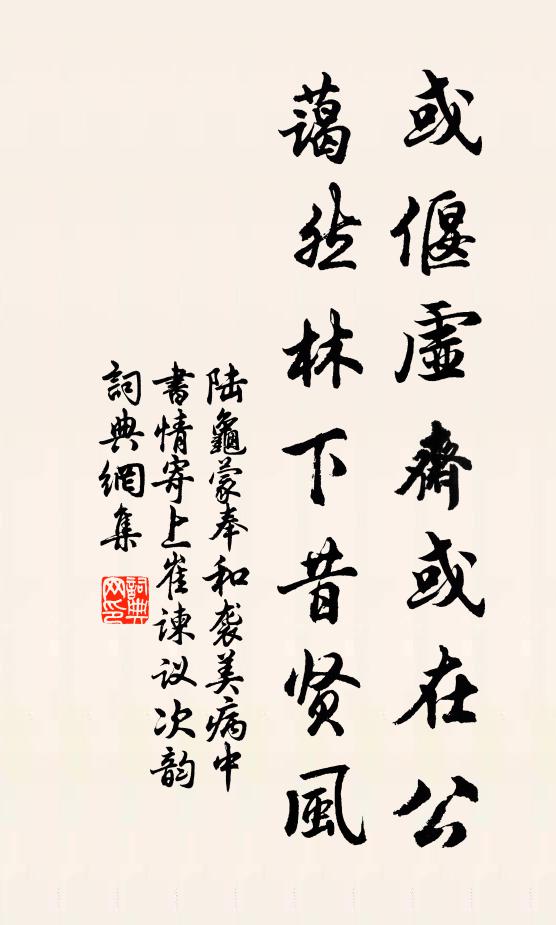 或偃虛齋或在公
藹然林下昔贤風
陆龜蒙奉和袭美病中
書情寄上崔諫议次韵
詞典網集
詞典网印